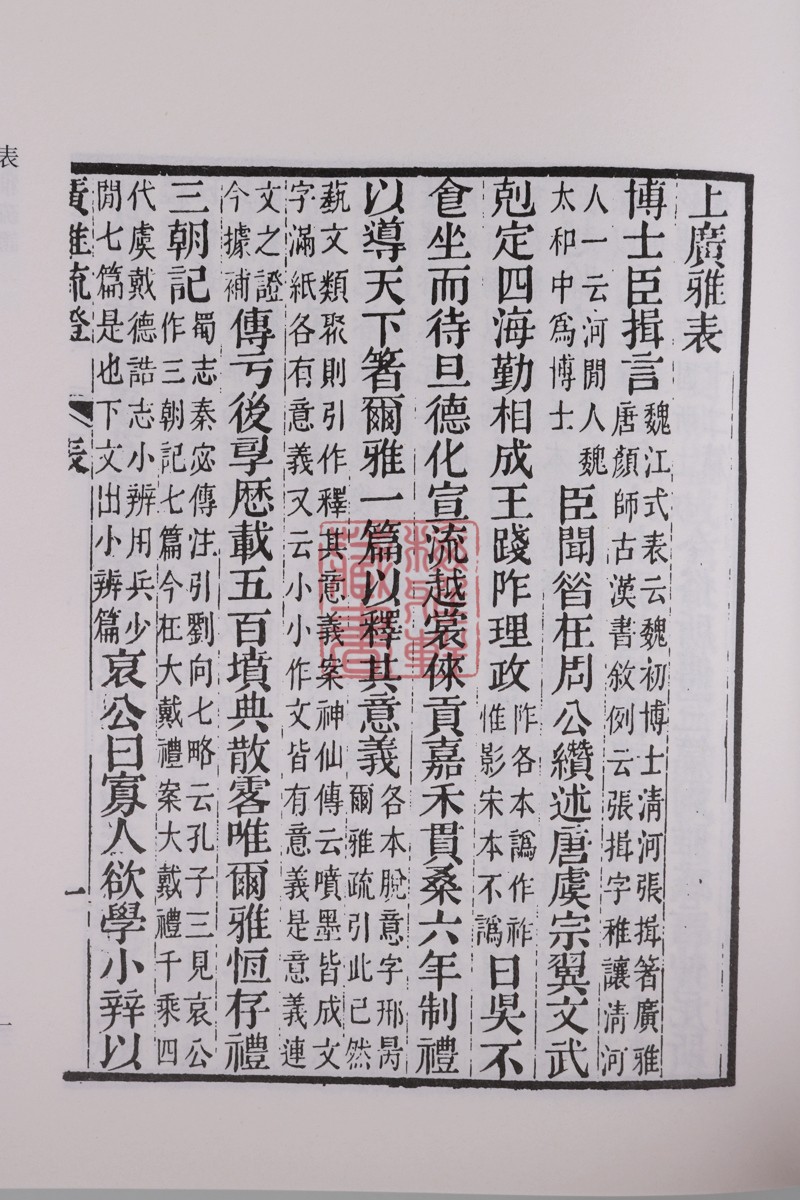 上廣雅表
博士臣揖言
魏江式表云魏初博士清河張揖箸廣雅
唐顏師古漢書敘例云張揖字稚讓清河
人一云河閒人魏
太和中爲博士
臣聞昝在周公纘述唐虞宗翼文武
剋定四海勤相成王踐阼理政
阼各本譌作祚
惟影宋本不譌
日昃不
食坐而待旦德化宣流越裳倈貢嘉禾貫桑六年制禮
以導天下箸爾雅一篇以釋其意義
各本脫意字邢昺
爾雅疏引此已然
藝文類聚則引作釋其意義案神仙傳云噴墨皆成文
字滿紙各有意義又云小小作文皆有意義是意義連
文之證
今據補
傳亏後孠歷載五百墳典散零唯爾雅恆存禮
三朝記
蜀志秦宓傳注引劉向七略云孔子三見哀公
作三朝記七篇今在大戴禮案大戴禮千乘四
代虞戴德誥志小辨用兵少
閒七篇是也下文出小辨篇
哀公曰寡人欲學小辨以
廣雅疏證
表
一
表
一